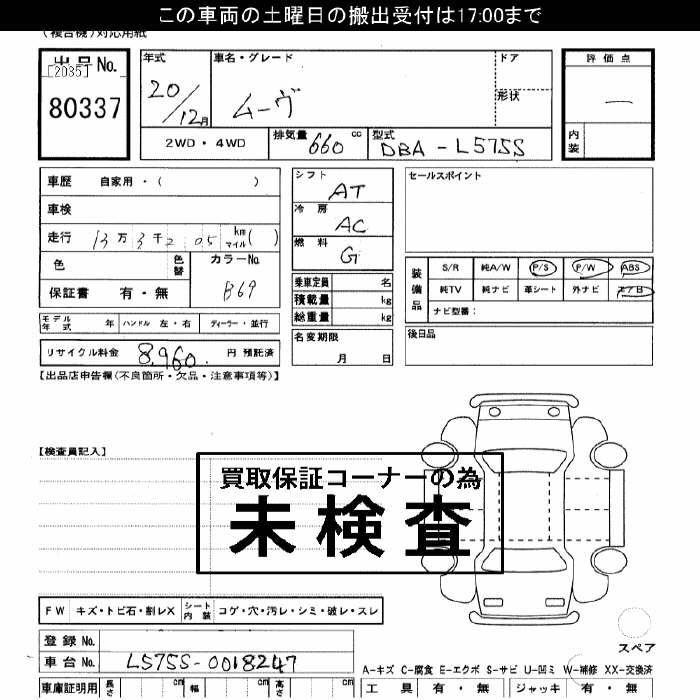 この車両の土曜日の搬出受付は17:00まで
(複合機)対応用紙
出品No.
[2035]
80337
年式
20/12月
車名・グレード
ムーヴ
ドア
形状
2WD・4WD
排気量 660 cc
型式 DBA-L575S
評価点
―
内装
車歴 自家用・( )
車検
走行 13万3千2 05 km マイル( )
色
色替
カラーNo.
B69
保証書 有・無
モデル年式 年
ハンドル 左・右
ディーラー・並行
リサイクル料金 8,960. 円 預託済
シフト AT
冷房 AC
燃料 G
乗車定員 名
積載量 kg
総重量 kg
名変期限
月 日
セールスポイント
装備品
S/R 純A/W P/S P/W ABS
純TV 純ナビ 革シート 外ナビ エアB
ナビ型番:
後日品
【出品店申告欄(不良箇所・欠品・注意事項等)】
【検査員記入】
買取保証コーナーの為
未検査
FW キズ・トビ石・割レX
シート内装 コゲ・穴・汚レ・シミ・破レ・スレ
スペア
登録No.
車台No. L575S-0018247
A-キズ C-腐食 E-エクボ S-サビ U-凹ミ W-補修 XX-交換済
車庫証明用 長さ cm 幅 cm 高さ cm
工具 有・無 ジャッキ 有・無